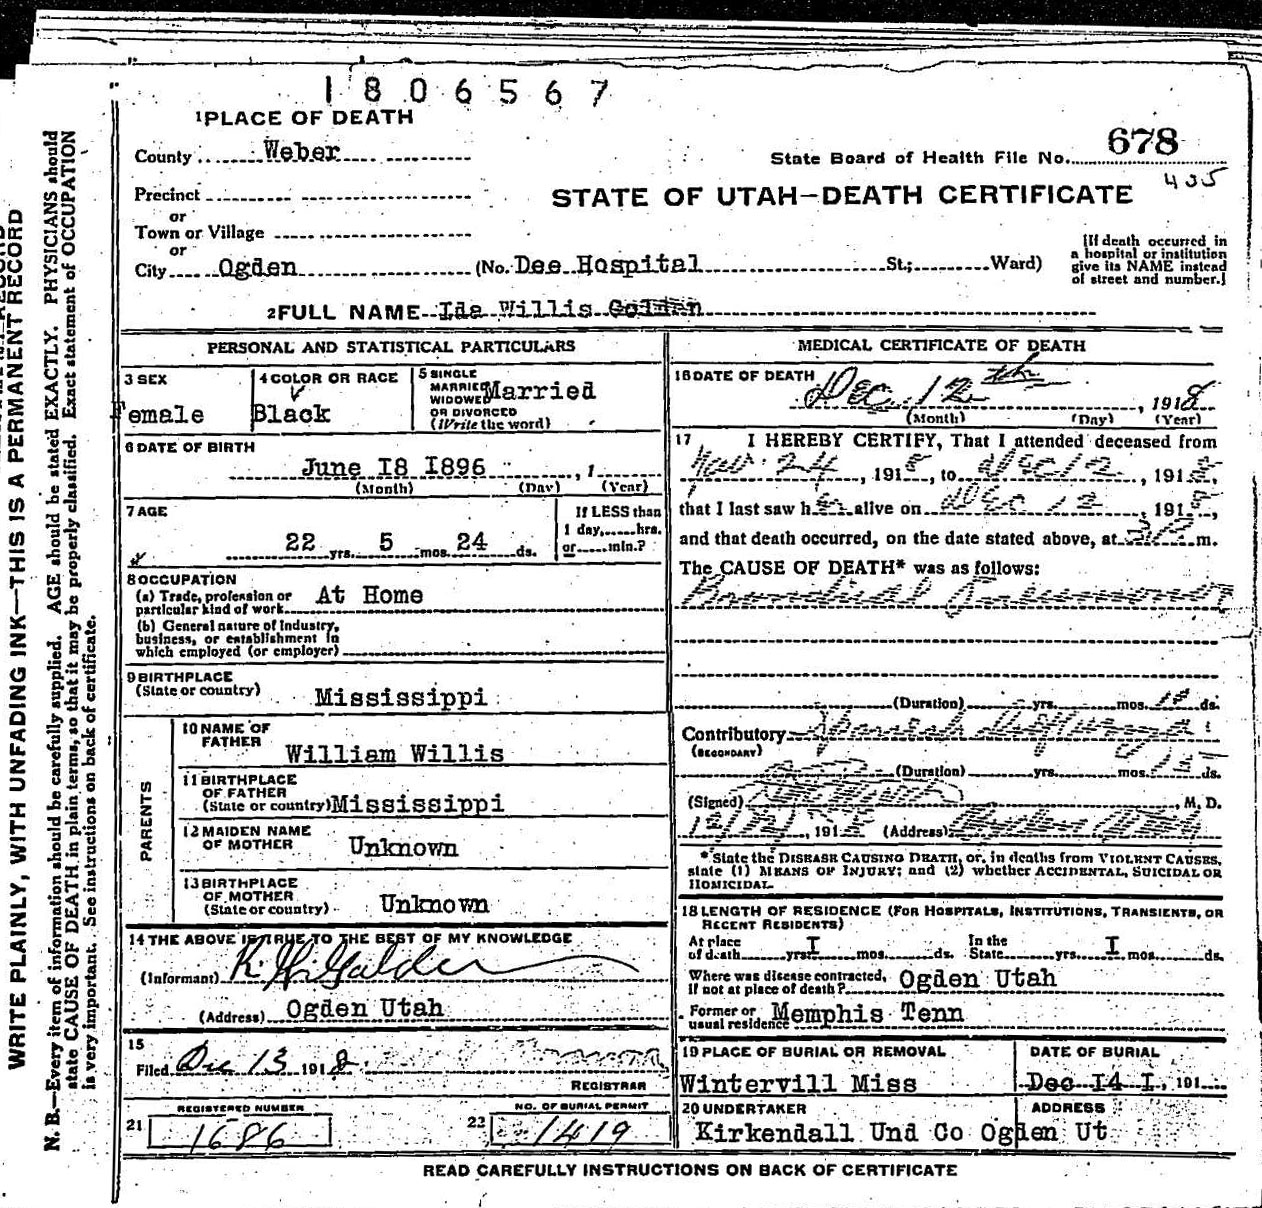 1806567
1 PLACE OF DEATH
County Weber
State Board of Health File No. 678
435
Precinct
STATE OF UTAH—DEATH CERTIFICATE
or
Town or Village
or
City Ogden (No. Dee Hospital St.; Ward)
[If death occurred in
a hospital or institution
give its NAME instead
of street and number.]
2 FULL NAME Ida Willis Golden
PERSONAL AND STATISTICAL PARTICULARS
3 SEX
Female
4 COLOR OR RACE
Black
5 SINGLE
MARRIED
WIDOWED
OR DIVORCED
(Write the word)
Married
6 DATE OF BIRTH
June I8 I896 , 1
(Month) (Day) (Year)
7 AGE
22 yrs. 5 mos. 24 ds.
If LESS than
1 day, hrs.
or min.?
8 OCCUPATION
(a) Trade, profession or
particular kind of work At Home
(b) General nature of industry,
business, or establishment in
which employed (or employer)
9 BIRTHPLACE
(State or country) Mississippi
PARENTS
10 NAME OF
FATHER William Willis
11 BIRTHPLACE
OF FATHER
(State or country) Mississippi
12 MAIDEN NAME
OF MOTHER Unknown
13 BIRTHPLACE
OF MOTHER
(State or country) Unknown
14 THE ABOVE IS TRUE TO THE BEST OF MY KNOWLEDGE
(Informant) R. H. Golden
(Address) Ogden Utah
15
Filed Dec 13 1918
REGISTRAR
REGISTERED NUMBER
21 1686
NO. OF BURIAL PERMIT
22 1419
MEDICAL CERTIFICATE OF DEATH
16 DATE OF DEATH Dec. 12th , 1918
(Month) (Day) (Year)
17 I HEREBY CERTIFY, That I attended deceased from
Nov. 24 , 1918, to Dec 12 , 1918,
that I last saw her alive on Dec 12 , 1918,
and that death occurred, on the date stated above, at m.
The CAUSE OF DEATH* was as follows:
Bronchial Pneumonia
(Duration) yrs. mos. ds.
Contributory Spanish Influenza
(SECONDARY)
(Duration) yrs. mos. ds.
(Signed) , M. D.
12/12, 1918 (Address)
* State the DISEASE CAUSING DEATH, or, in deaths from VIOLENT CAUSES,
state (1) MEANS OF INJURY; and (2) whether ACCIDENTAL, SUICIDAL OR
HOMICIDAL.
18 LENGTH OF RESIDENCE (FOR HOSPITALS, INSTITUTIONS, TRANSIENTS, OR
RECENT RESIDENTS)
At place
of death yrs. I mos. ds.
In the
State yrs. I mos. ds.
Where was disease contracted,
If not at place of death? Ogden Utah
Former or
usual residence Memphis Tenn
19 PLACE OF BURIAL OR REMOVAL
Wintervill Miss
DATE OF BURIAL
Dec I4 I, 191
20 UNDERTAKER
Kirkendall Und Co
ADDRESS
Ogden Ut
READ CAREFULLY INSTRUCTIONS ON BACK OF CERTIFICATE
WRITE PLAINLY, WITH UNFADING INK—THIS IS A PERMANENT RECORD
N. B.—Every item of information should be carefully supplied. AGE should be stated EXACTLY. PHYSICIANS should
state CAUSE OF DEATH in plain terms, so that it may be properly classified. Exact statement of OCCUPATION
is very important. See instructions on back of certificate.